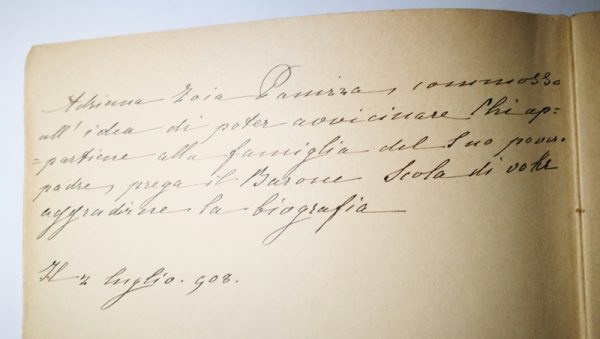 Adriana Zoia Panizza, commossa
all' idea di poter avvicinare Chi ap=
=partiene alla famiglia del Suo pover
padre, prega il Barone Scola di voler
aggradirne la biografia
Il 2 luglio. 908.